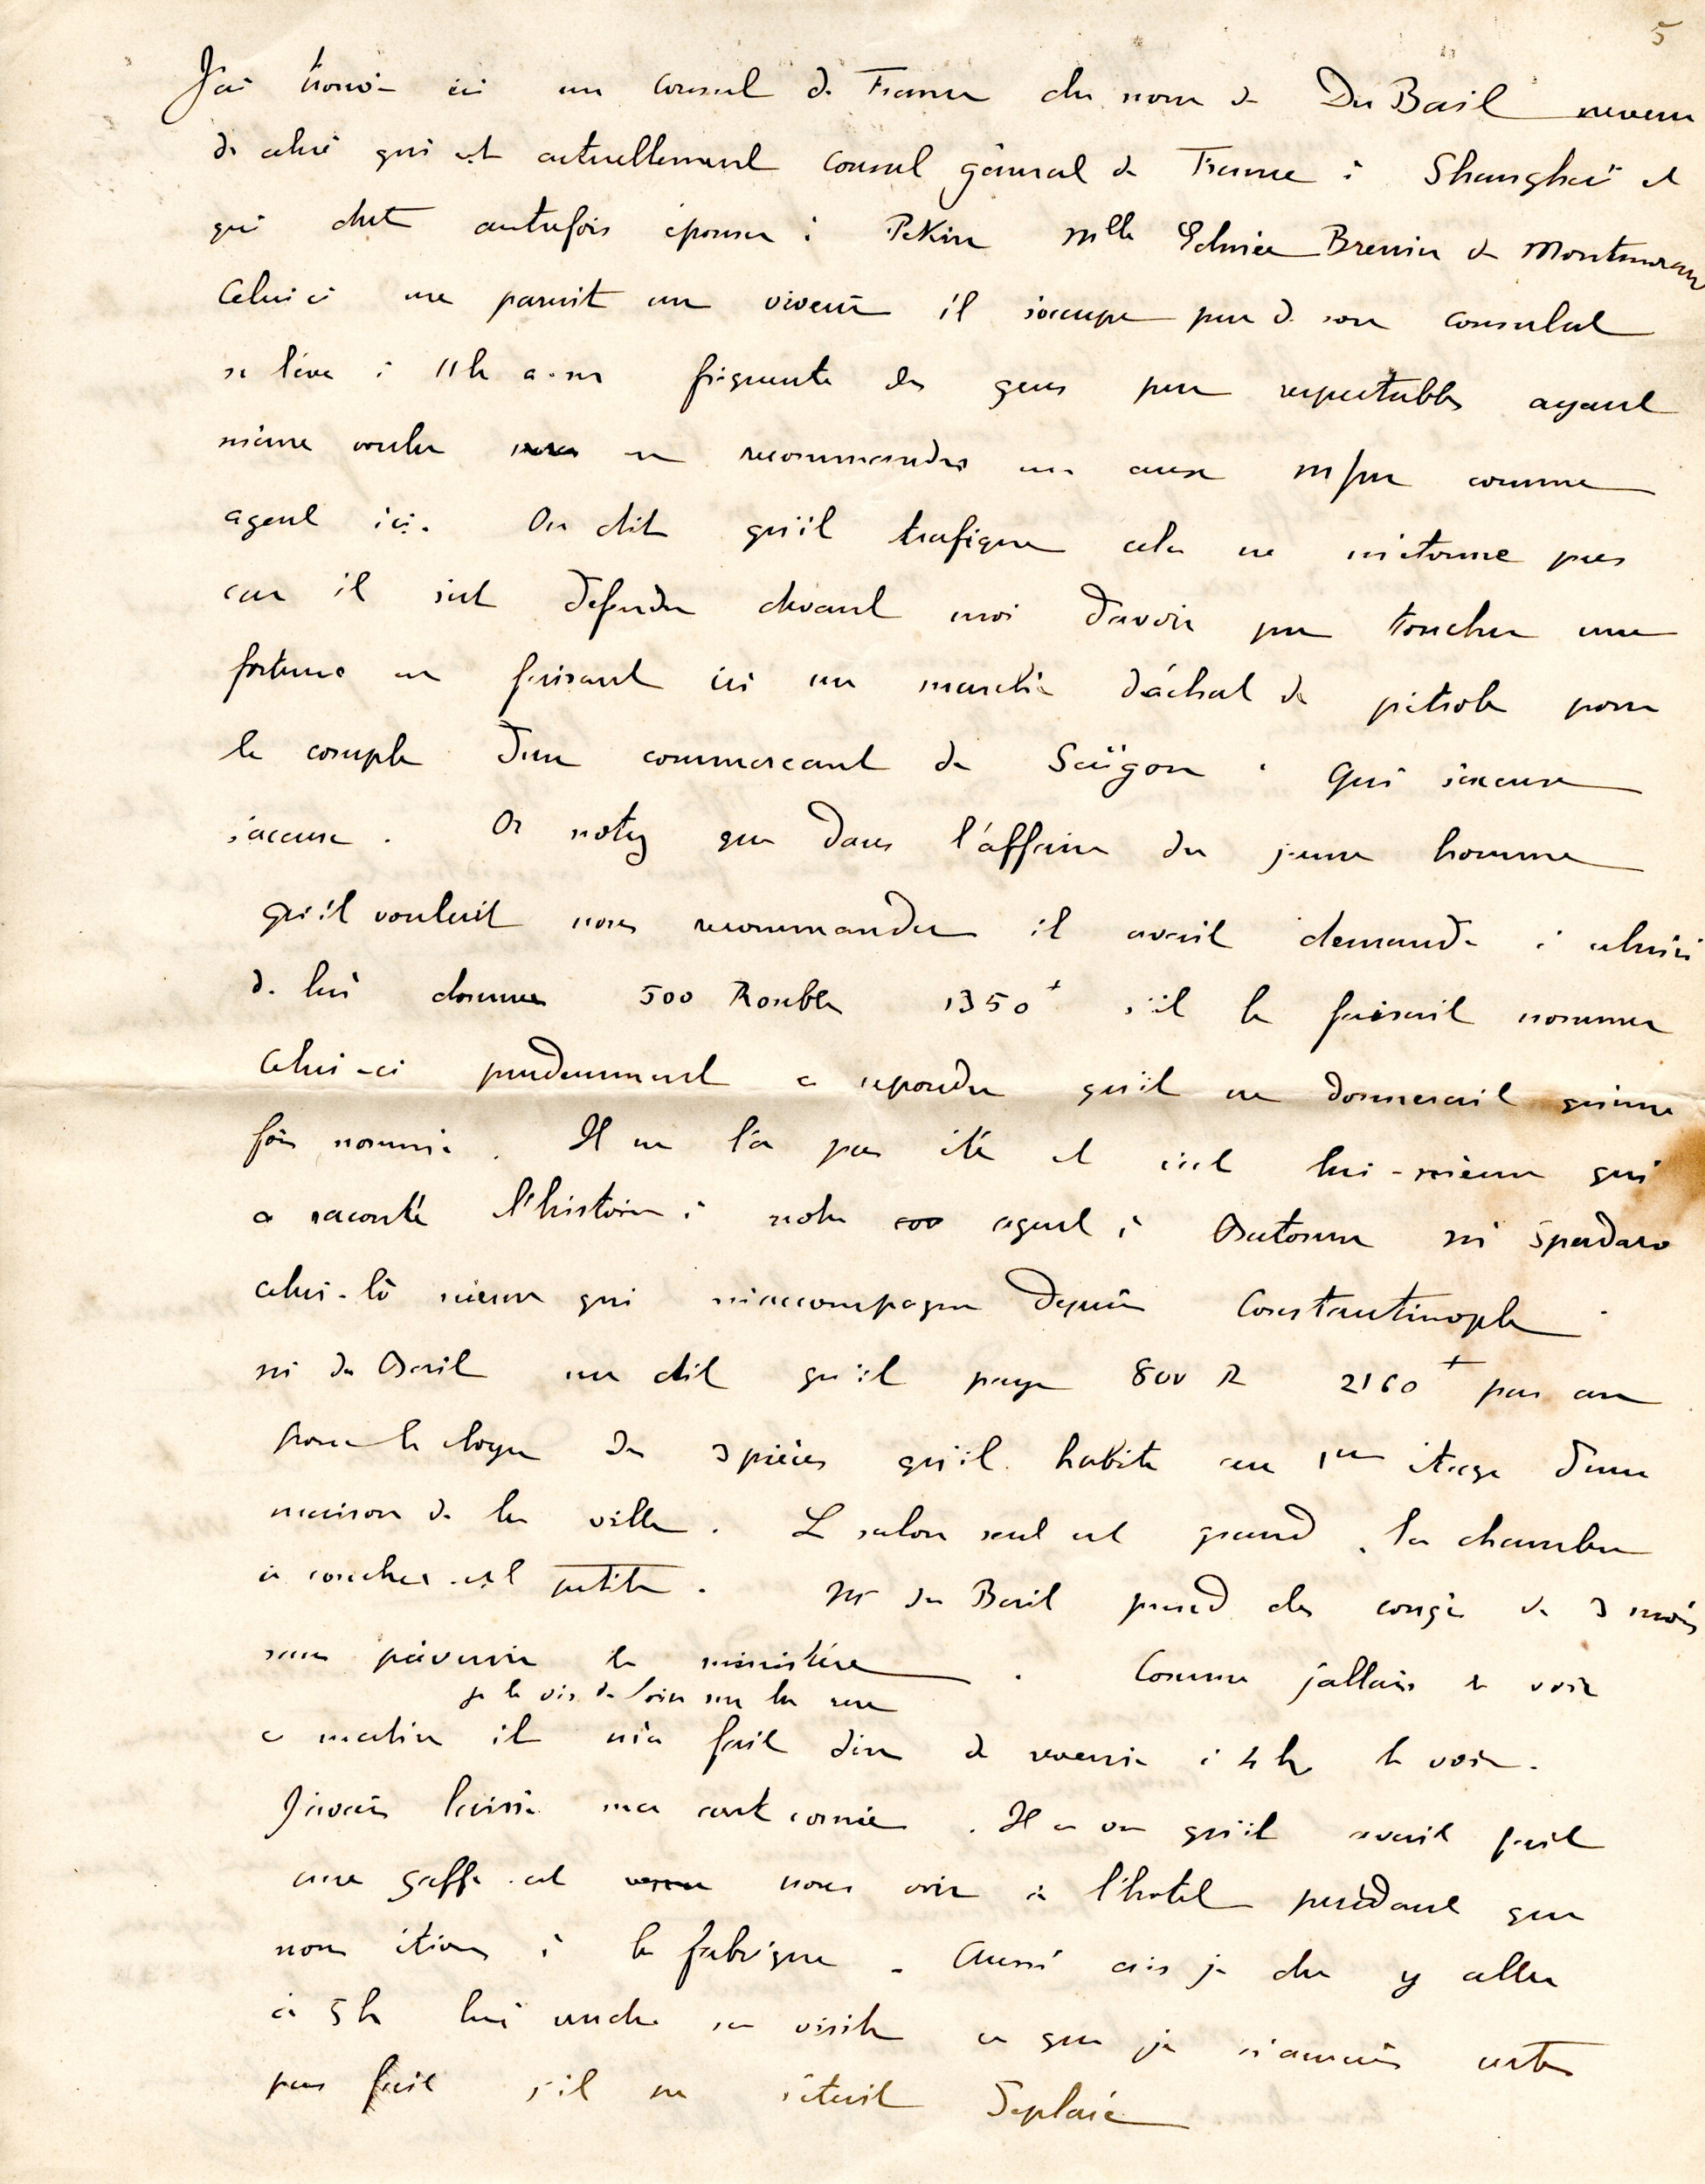 5
J'ai trouvé ici un consul de France du nom de Du Bail neveu
de celui qui est actuellement consul général de France à Shanghaï et
qui dut autrefois épouser à Pekin Mlle Edmée Brenier de Montmoran
Celui ci me parait un viveur il s'occupe peu de son consulat
se lève à 11h a.m fréquente des gens peu respectables ayant
même voulu nous en recommander un assez comme
agent ici. On dit qu'il trafique cela ne m'etonne pas
car il s'est défendu devant moi d'avoir pu toucher une
fortune en faisant ici un marché d'achat de pétrole pour
le compte d'un commercant de Saïgon. Qui s'excuse
s'accuse. Or notez que dans l'affaire du jeune homme
qu'il voulait nous recommander il avait demandé à celui ci
de lui donner 500 Roubles 1350f s'il le faisait nommer
Celui-ci prudemment a repondu qu'il ne donnerait qu'une
fois nommé. Il ne l'a pas été et c'est lui-même qui
a raconté l'histoire à notre agent à Batoum Mr Spadaro
celui-là même qui m'accompagne depuis Constantinople.
Mr du Bail me dit qu'il paye 800 R 2160f par an
pour le loyer des 3 pièces qu'il habite au 1er étage d'une
maison de la ville. Le salon seul est grand, la chambre
à coucher est petite. Mr du Bail prend des congés de 3 mois
sans prévenir le ministère. Comme j'allais le voir
je le vis de loin sur la rue
ce matin il m'a fait dire de revenir à 4h le voir.
J'avais laissé ma carte cornée. Il a vu qu'il avait fait
une gaffe est venu nous voir à l'hotel pendant que
nous étions à la fabrique. Aussi ais je du y aller
à 5h lui rendre sa visite ce que je n'aurais certes
pas fait s'il ne s'était déplacé